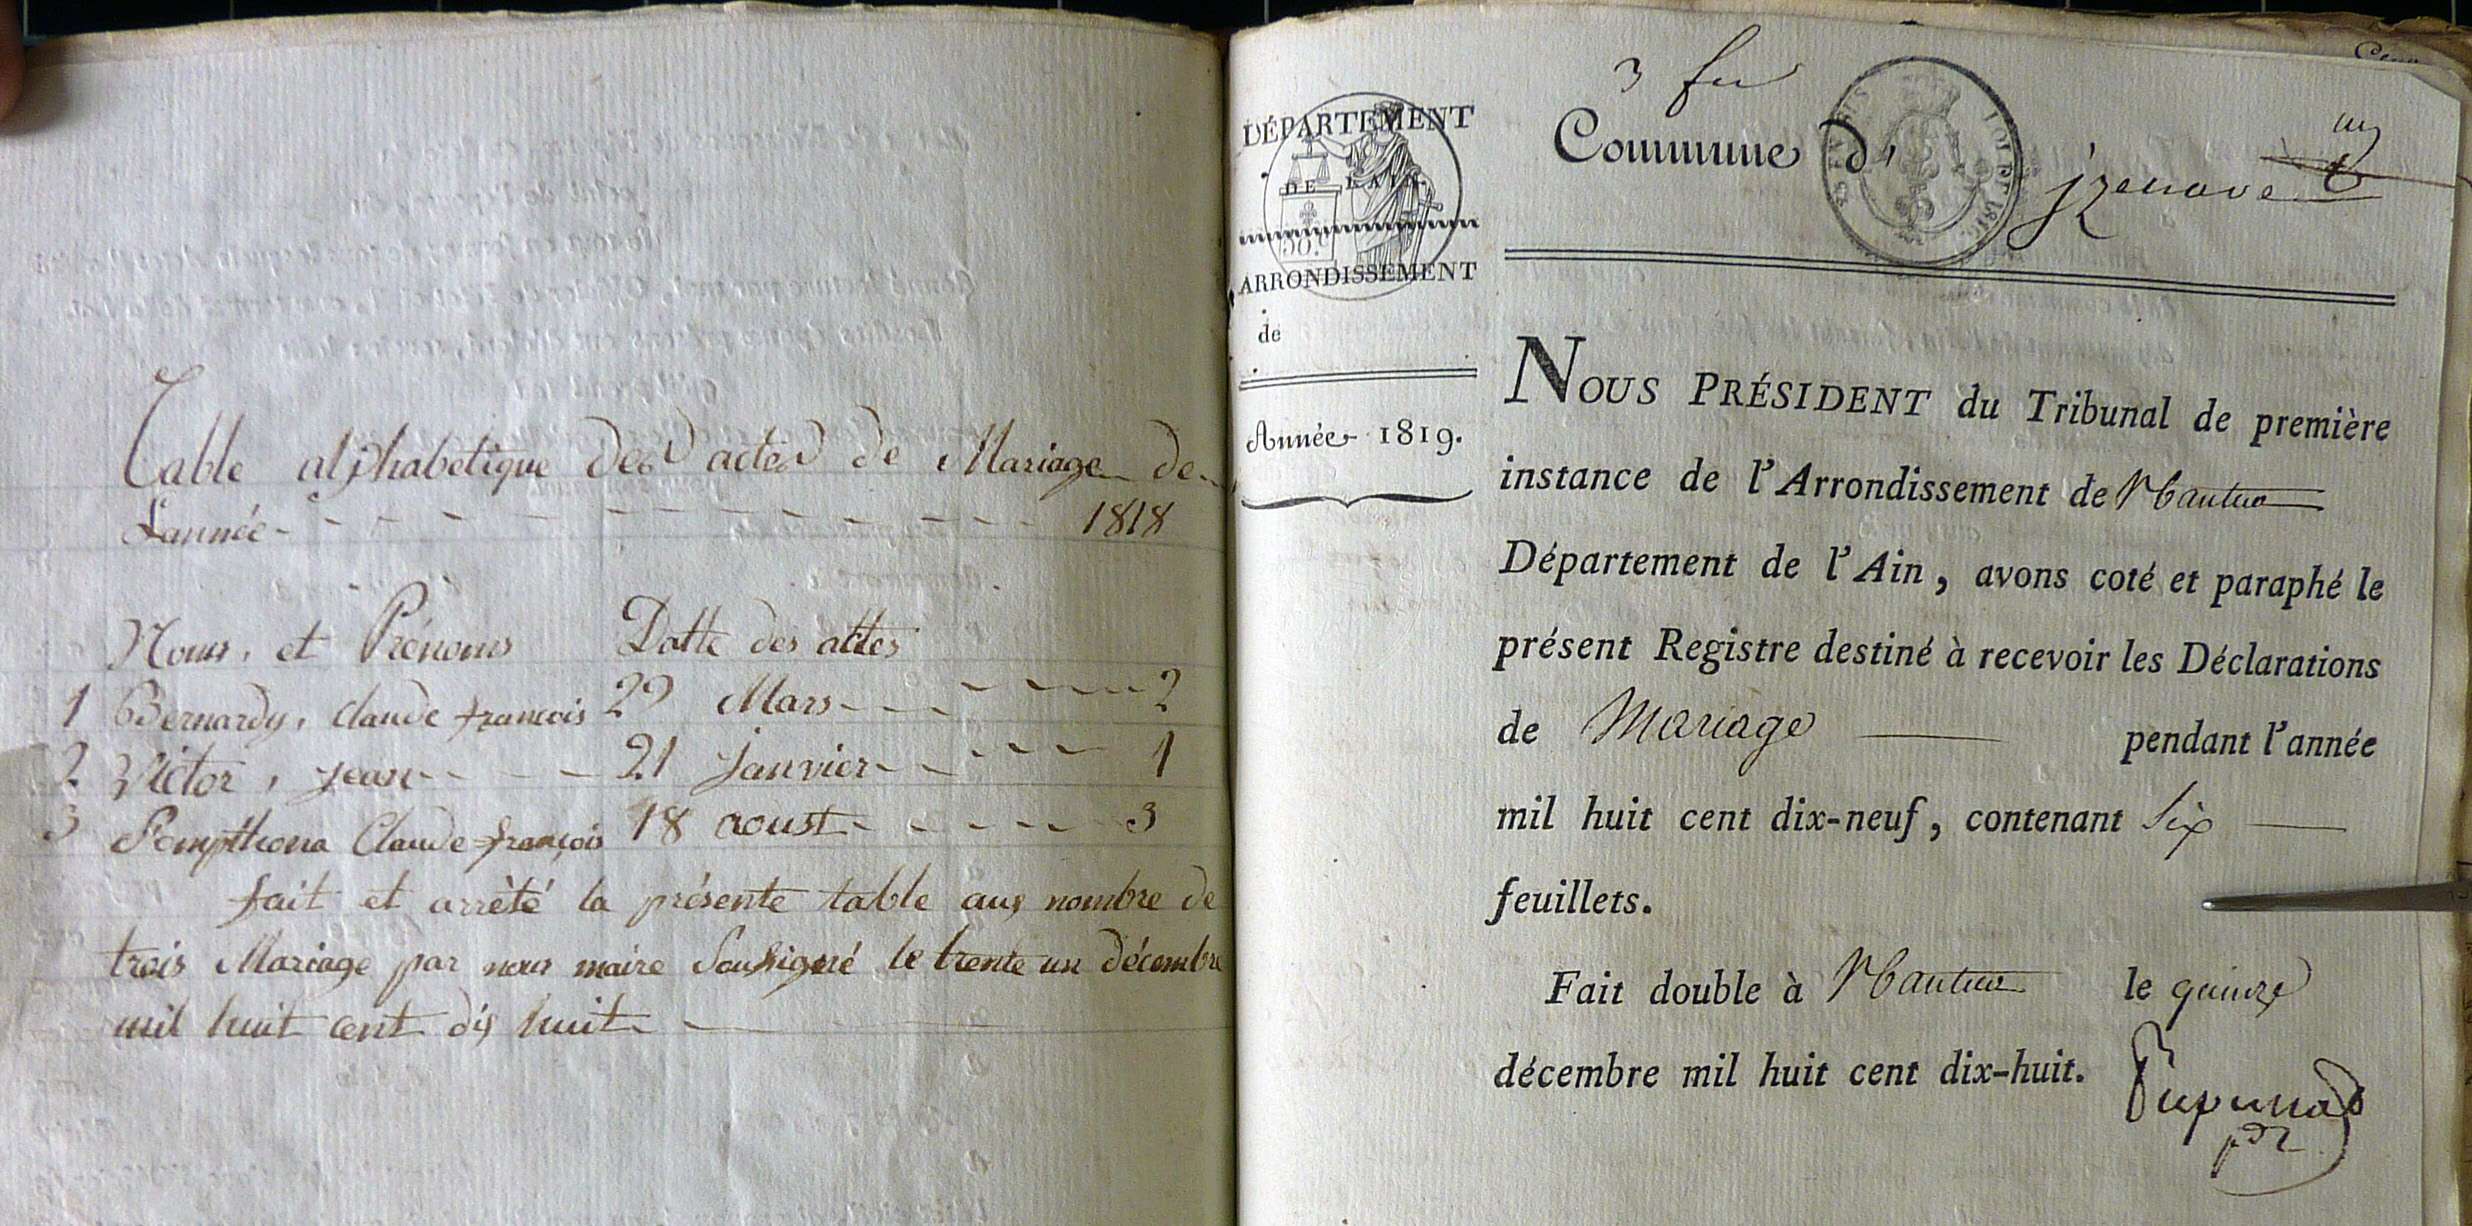 Table alphabetique des actes de Mariage de
L'année - - - - - - - - - - - - 1818
Noms, et Prénoms Datte des attes
1 Bernardy, claude françois 29 Mars - - - - - - - 2
2 Victor, jean - - - - 21 janvier - - - - - 1
3 Pompthona Claude-françois 18 aoust - - - - - 3
fait et arrêté la présente table aux nombre de
trois Mariage par nous maire soussigné le trente un décembre
mil huit cent dix huit
3 fer
DÉPARTEMENT
DE L'AIN.
50.c
ARRONDISSEMENT
de
Année 1819.
Commune d'izenave
NOUS PRÉSIDENT du Tribunal de première
instance de l'Arrondissement de Nantua
Département de l'Ain, avons coté et paraphé le
présent Registre destiné à recevoir les Déclarations
de Mariage pendant l'année
mil huit cent dix-neuf, contenant Six
feuillets.
Fait double à Nantua le quinze
décembre mil huit cent dix-huit.